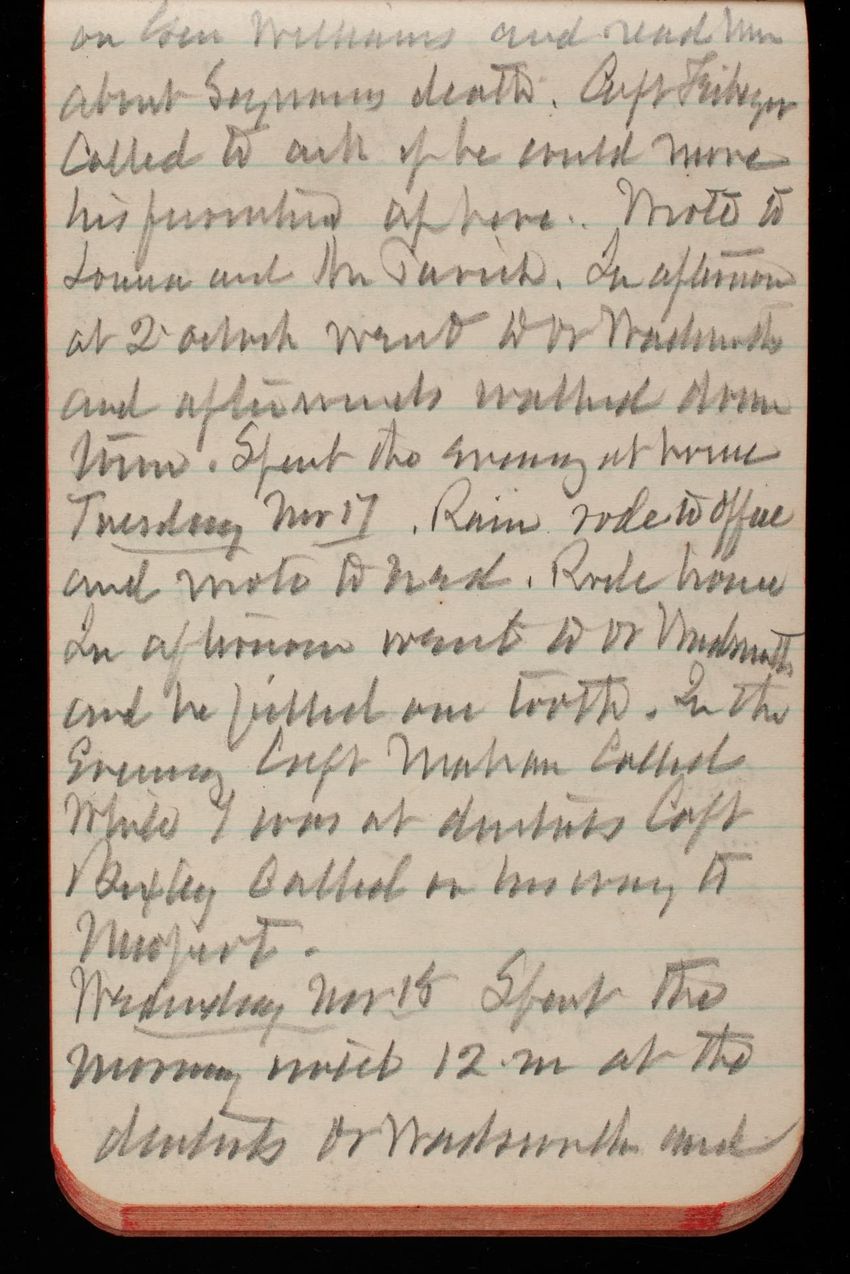 on Gen Williams and read him
about Seymours death. Capt
Called to ask if he could move
his furniture up here. Wrote to
Louisa and Mr Parish. In afternoon
at 2 oclock went to Dr Wadsworths
and afterwards walked down
town. Spent the evening at home
Tuesday Nov 17. Rain rode to office
and wrote to Ned. Rode home
In afternoon went to Dr Wadsworth
and he filled one tooth. In the
Evening Capt Mahan Called
While I was at dentists Capt
Bixby Called on his way to
Newport.
Wednesday Nov 18 Spent the
morning until 12 m at the
dentists Dr Wadsworth and